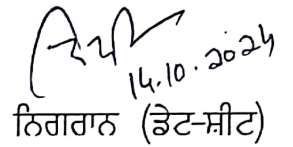 14.10.2024
ਨਿਗਰਾਨ (ਡੇਟ-ਸ਼ੀਟ)